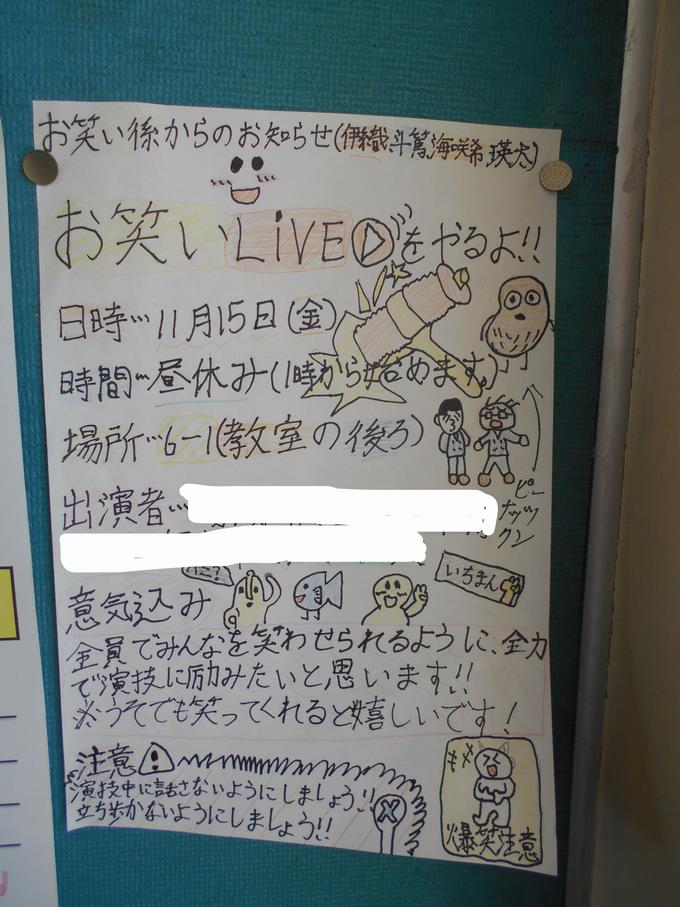 お笑い係からのお知らせ(伊織,斗篤,海咲希,瑛太)
お笑いLiVEをやるよ!!
日時…11月15日(金)
時間…昼休み(1時から始めます。)
場所…6-1(教室の後ろ)
出演者…
ピーナッツクン
いちまん
意気込み
全員でみんなを笑わせられるように、全力
で演技に励みたいと思います!!
※うそでも笑ってくれると嬉しいです!
注意
演技中に話さないようにしましょう!!
立ち歩かないようにしましょう!!
爆笑注意